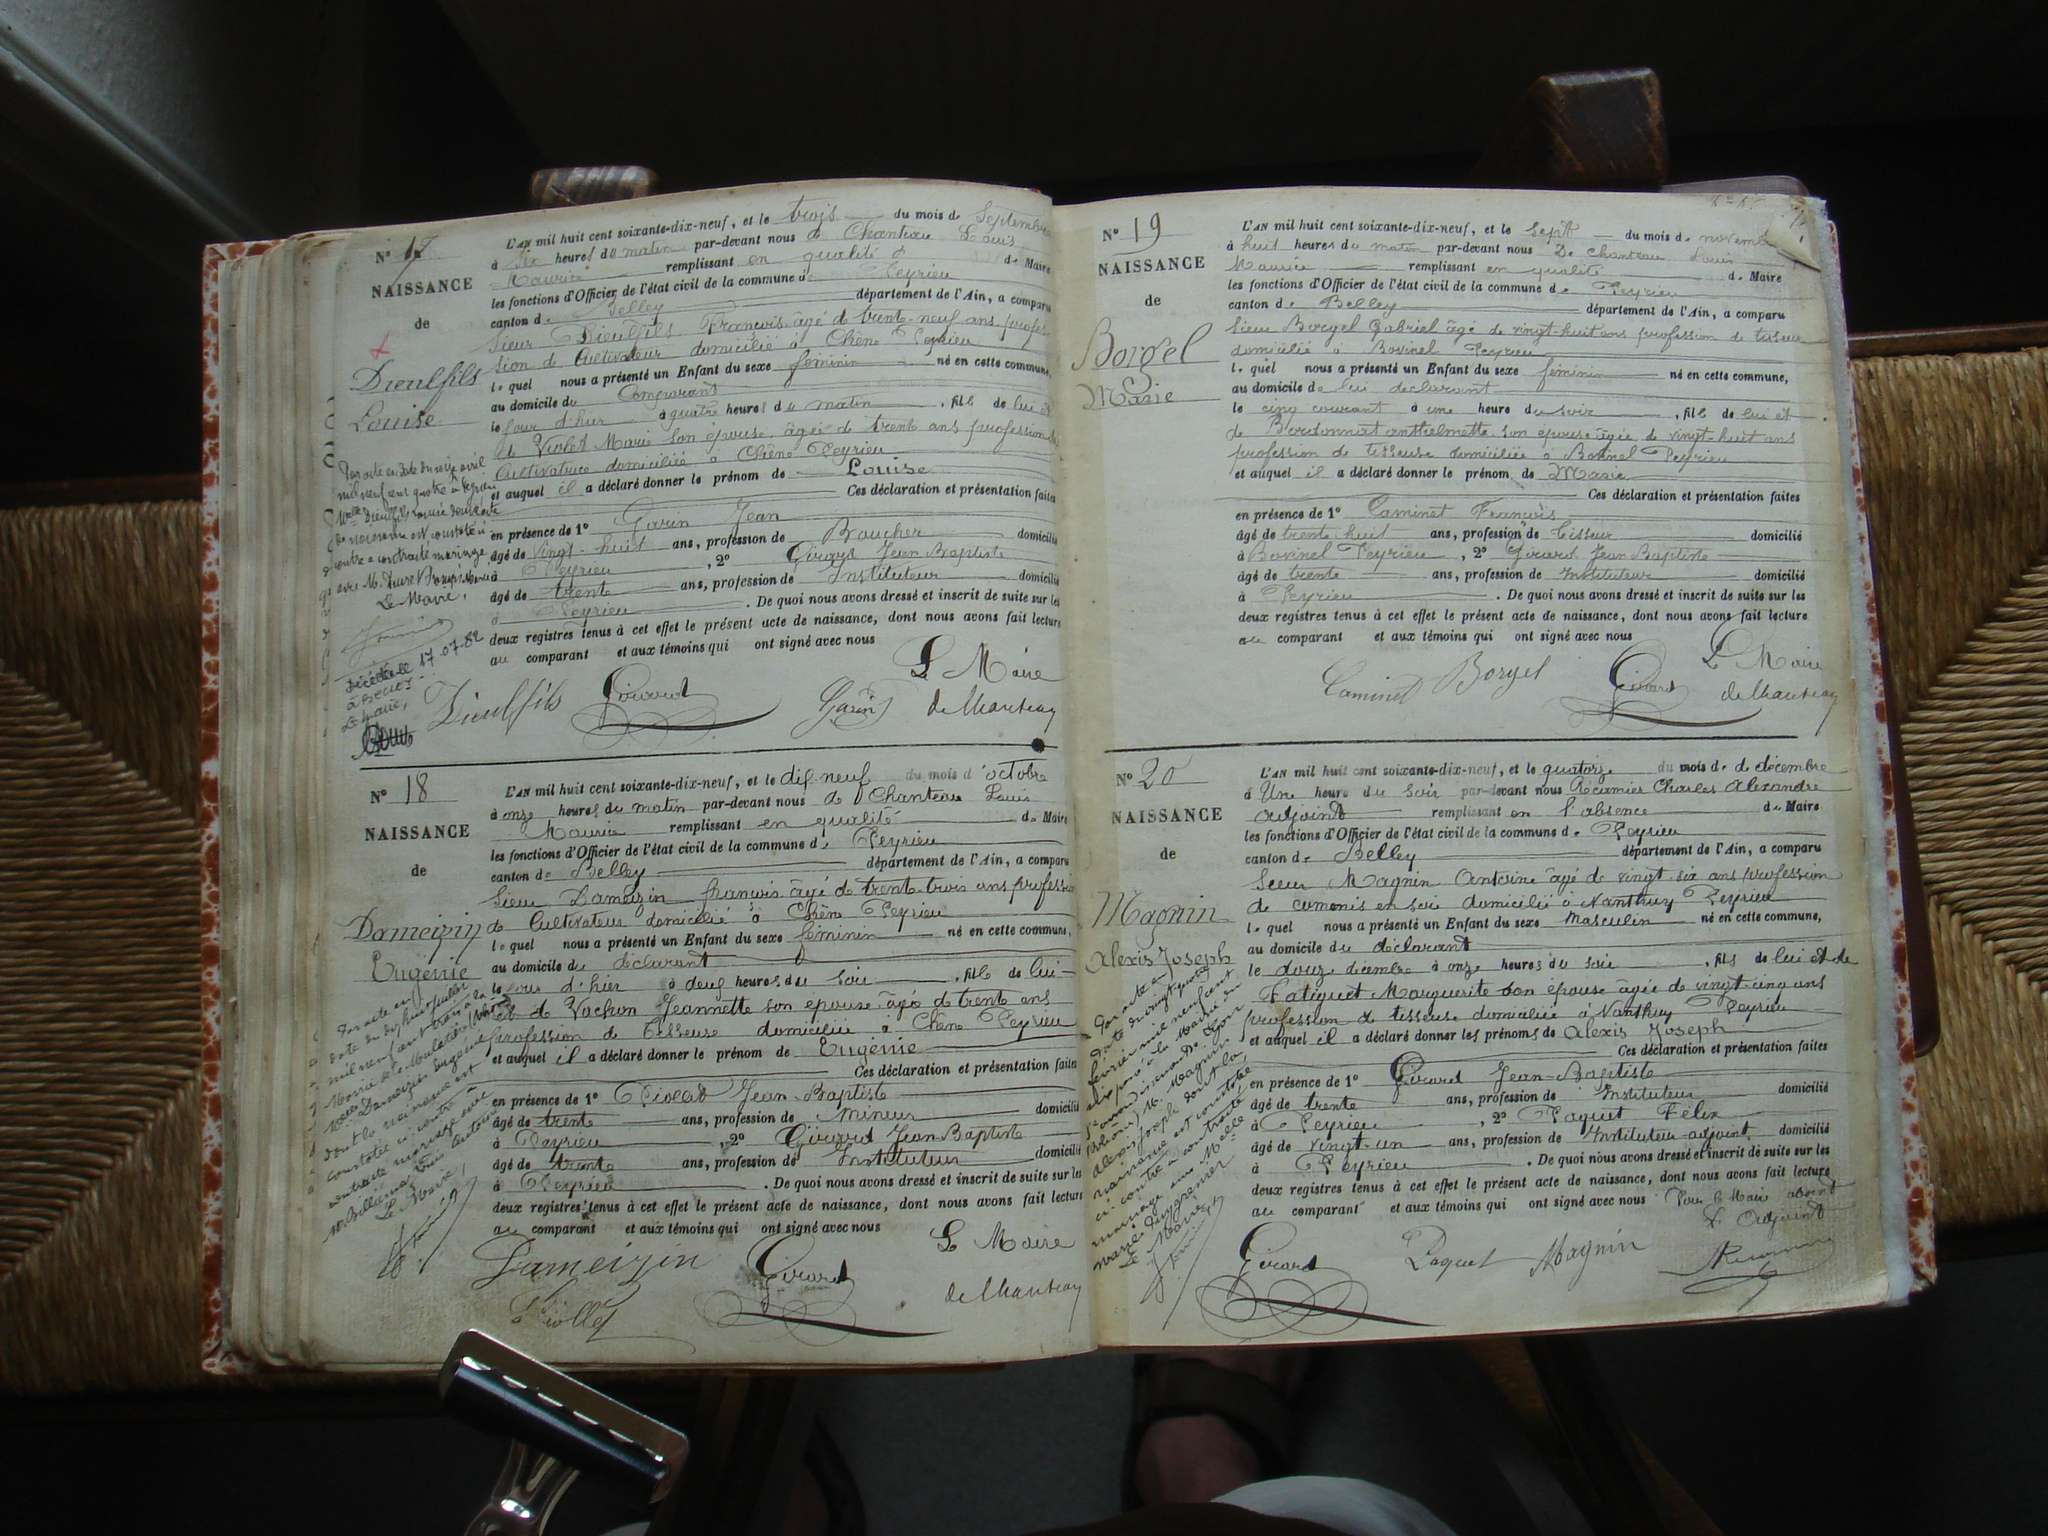 N° 17
NAISSANCE
de
Dieulfils
Louise
L'AN mil huit cent soixante-dix-neuf, et le trois du mois de Septembre
à six heures du matin par-devant nous de Chanteau Louis
Maurice remplissant en qualité d de Maire
les fonctions d'Officier de l'état civil de la commune de Peyrieu
canton de Belley département de l'Ain, a comparu
Sieur Dieulfils François âgé de trente-neuf ans profes-
sion de Cultivateur domicilié à Chêne Peyrieu
lequel nous a présenté un Enfant du sexe féminin né en cette commune,
au domicile du Comparant
le jour d'hier à quatre heures du matin, fille de lui et
de Violet Marie son épouse âgée de trente ans profession de
Cultivatrice domiciliée à Chêne Peyrieu
et auquel il a déclaré donner le prénom de Louise
Ces déclaration et présentation faites
en présence de 1° Garin Jean
âgé de vingt-huit ans, profession de Boucher domicilié
à Peyrieu, 2° Girard Jean Baptiste
âgé de trente ans, profession de Instituteur domicilié
à Peyrieu. De quoi nous avons dressé et inscrit de suite sur les
deux registres tenus à cet effet le présent acte de naissance, dont nous avons fait lecture
au comparant et aux témoins qui ont signé avec nous
Le Maire
Dieulfils Girard Garin de Chanteau
Par acte en date du seize avril
mil neuf cent quatre
Melle Dieulfils Louise dont l'acte
de naissance est constaté ci-
contre a contracté mariage
avec M.
Le Maire,
Décédée 17-07-82
à BELLEY
Le Maire,
N° 18
NAISSANCE
de
Dameizin
Eugénie
L'AN mil huit cent soixante-dix-neuf, et le dix-neuf du mois d'octobre
à onze heures du matin par-devant nous de Chanteau Louis
Maurice remplissant en qualité de Maire
les fonctions d'Officier de l'état civil de la commune de Peyrieu
canton de Belley département de l'Ain, a comparu
Sieur Dameizin François âgé de trente-trois ans profession
de Cultivateur domicilié à Chêne Peyrieu
lequel nous a présenté un Enfant du sexe féminin né en cette commune,
au domicile du déclarant
le jour d'hier à deux heures du soir, fille de lui
et de Vachon Jeannette son épouse âgée de trente ans
profession de Tisseuse domiciliée à Chêne Peyrieu
et auquel il a déclaré donner le prénom de Eugénie
Ces déclaration et présentation faites
en présence de 1° Piollet Jean-Baptiste
âgé de trente ans, profession de Mineur domicilié
à Peyrieu, 2° Girard Jean Baptiste
âgé de trente ans, profession de Instituteur domicilié
à Peyrieu. De quoi nous avons dressé et inscrit de suite sur les
deux registres tenus à cet effet le présent acte de naissance, dont nous avons fait lecture
au comparant et aux témoins qui ont signé avec nous
Le Maire
Dameizin Girard de Chanteau
Piollet
Par acte en
date du dix-huit juillet
mil neuf cent trois à la
Mairie de la Mulatière (Rhône)
Melle Dameizin Eugénie
dont la naissance est
constatée ci-contre a
contracté mariage avec
M. Billamaz
Le Maire,
N° 19
NAISSANCE
de
Borgel
Marie
L'AN mil huit cent soixante-dix-neuf, et le sept du mois de novembre
à huit heures du matin par-devant nous De Chanteau Louis
Maurice remplissant en qualité de Maire
les fonctions d'Officier de l'état civil de la commune de Peyrieu
canton de Belley département de l'Ain, a comparu
Sieur Borgel Gabriel âgé de vingt-huit ans profession de tisseur
domicilié à Bovinel Peyrieu
lequel nous a présenté un Enfant du sexe féminin né en cette commune,
au domicile de lui déclarant
le cinq courant à une heure du soir, fille de lui et
de Bordonnat Anthelmette son épouse âgée de vingt-huit ans
profession de tisseuse domiciliée à Bovinel Peyrieu
et auquel il a déclaré donner le prénom de Marie
Ces déclaration et présentation faites
en présence de 1° Caminet François
âgé de trente-huit ans, profession de Tisseur domicilié
à Bovinel Peyrieu, 2° Girard Jean Baptiste
âgé de trente ans, profession de Instituteur domicilié
à Peyrieu. De quoi nous avons dressé et inscrit de suite sur les
deux registres tenus à cet effet le présent acte de naissance, dont nous avons fait lecture
au comparant et aux témoins qui ont signé avec nous
Le Maire
Caminet Borgel Girard de Chanteau
N° 20
NAISSANCE
de
Magnin
Alexis Joseph
L'AN mil huit cent soixante-dix-neuf, et le quatorze du mois de décembre
à Une heure du soir par-devant nous Récamier Charles Alexandre
adjoint remplissant en l'absence du Maire
les fonctions d'Officier de l'état civil de la commune de Peyrieu
canton de Belley département de l'Ain, a comparu
Sieur Magnin Antoine âgé de vingt-six ans profession
de commis en soie domicilié à Nanthuy Peyrieu
lequel nous a présenté un Enfant du sexe Masculin né en cette commune,
au domicile du déclarant
le douze décembre à onze heures du soir, fils de lui et de
Fatiguet Marguerite son épouse âgée de vingt-cinq ans
profession de tisseuse domiciliée à Nanthuy Peyrieu
et auquel il a déclaré donner les prénoms de Alexis Joseph
Ces déclaration et présentation faites
en présence de 1° Girard Jean-Baptiste
âgé de trente ans, profession de Instituteur domicilié
à Peyrieu, 2° Paquet Félix
âgé de vingt-un ans, profession de Instituteur-adjoint domicilié
à Peyrieu. De quoi nous avons dressé et inscrit de suite sur les
deux registres tenus à cet effet le présent acte de naissance, dont nous avons fait lecture
au comparant et aux témoins qui ont signé avec nous Pour le Maire absent
L'Adjoint
Girard Paquet Magnin
Par acte en
date du vingt quatre
février mil neuf cent
à la Mairie du
arrondissement de Lyon
(Rhône) M. Magnin
Alexis Joseph dont la
naissance est constatée
ci-contre a contracté
mariage avec Melle
Le Maire